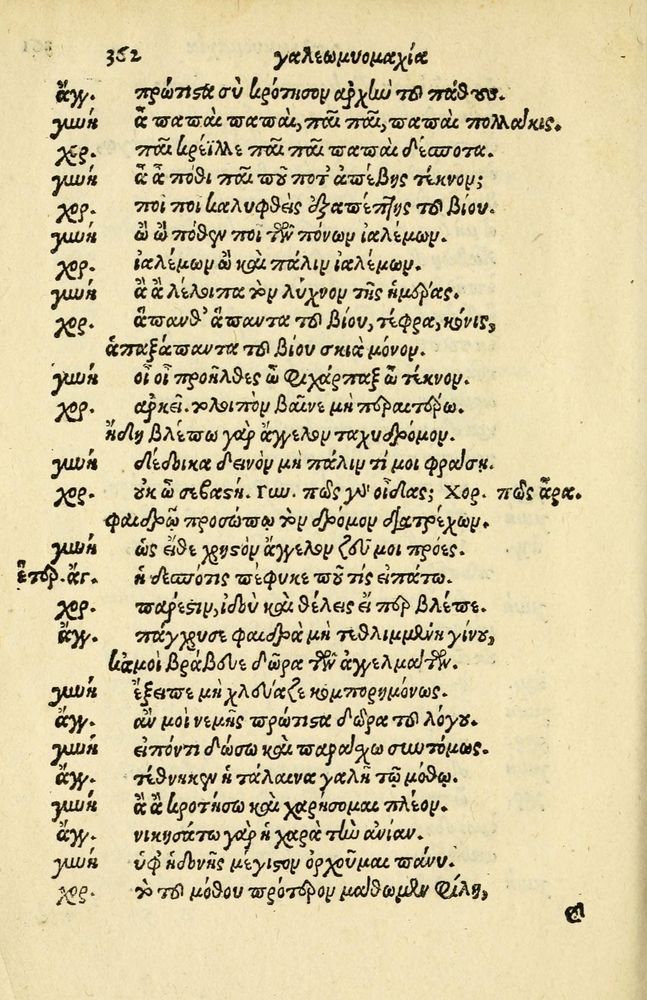 362 γαλεωμυομαχία
ἄγγ. πρώτιστα σὺ κρότησον ἀρχὴν τοῦ πάθους.
γυνή ἆ παπαὶ παπαὶ, παῖ παῖ, παπαὶ πολλάκις.
χορ. παῖ κρέϊλλε παῖ παῖ παπαὶ δέσποτα.
γυνή ἆ ἆ πόθι παῖ ποῦ ποτ' ἀπέβης τέκνον;
χορ. ποῖ ποῖ καλυφθεὶς ἐξαπέπτης τοῦ βίου.
γυνή ὢ ὢ πόθεν ποῖ τῶν πόνων ἰαλέμων.
χορ. ἰαλέμων ὢ καὶ πάλιν ἰαλέμων.
γυνή ἆ ἆ λέλοιπα τὸν λύχνον τῆς ἡμέρας.
χορ. ἅπανθ' ἅπαντα τοῦ βίου, τέφρα, κόνις,
ἁπαξάπαντα τοῦ βίου σκιὰ μόνον.
γυνή οἷ οἷ προῆλθες ὦ ψιχάρπαξ ὦ τέκνον.
χορ. ἀρκεῖ. τὸ λοιπὸν βαῖνε μὴ περαιτέρω.
ἤδη βλέπω γὰρ ἄγγελον ταχυδρόμον.
γυνή δέδοικα δεινὸν μὴ πάλιν τί μοι φράσῃ.
χορ. οὐκ ὦ σεβαστή. Γυν. πῶς γ' οἶδας; Χορ. πῶς ἆρα.
φαιδρῷ προσώπῳ τὸν δρόμον διατρέχων.
γυνή ὡς εἴθε χρηστὸν ἄγγελον ζεῦ μοι προες.
ἕτερ. ἄγ. ἡ δεσπότις πέφυκε ποῦ τίς εἰπάτω.
χορ. πάρεστιν, ἰδοὺ καὶ θέλεις εἴπερ βλέπε.
ἄγγ. πάγχρυσε φαιδρὰ μὴ τεθλιμμένη γίνου,
κἀμοὶ βράβευε δῶρα τῶν ἀγγελμάτων.
γυνή ἔξειπε μὴ χλεύαζε κομπορημόνως.
ἄγγ. ἄν μοι νεμῇς πρώτιστα δῶρα τοῦ λόγου.
γυνή εἰπόντι δώσω καὶ παράσχω συντόμως.
ἄγγ. τέθνηκεν ἡ τάλαινα γαλῆ τῷ μόθῳ.
γυνή ἆ ἆ κροτήσω καὶ χαρήσομαι πλέον.
ἄγγ. νικησάτω γὰρ ἡ χαρὰ τὴν ἀνίαν.
γυνή ὑφ ἡδονῆς μέγιστον ὀρχοῦμαι πάνυ.
χορ. τὸ τοῦ μόθου πρότερον μάθωμεν φίλη,